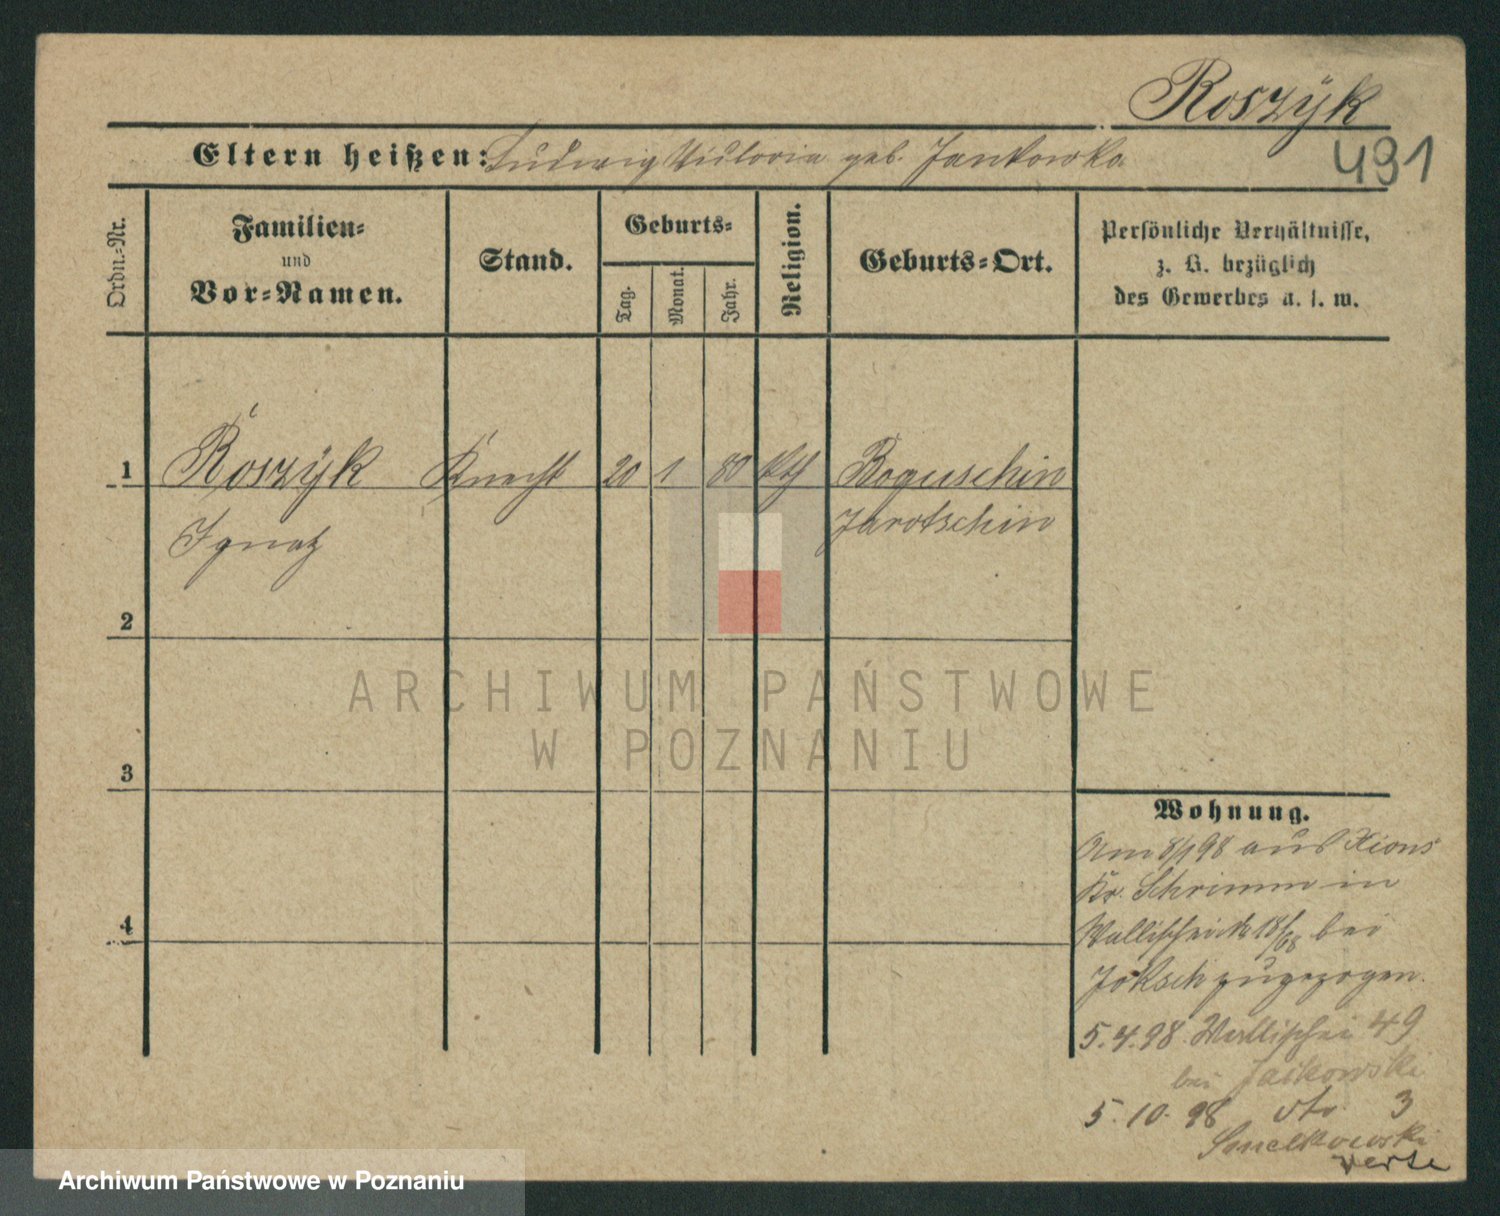 Roszÿk
491
Eltern heißen: Ludwig Victoria geb. Jankowka
Ordn.-Nr.
Familien-
und
Vor-Namen.
Stand.
Geburts-
Tag.
Monat.
Jahr.
Religion.
Geburts-Ort.
Persönliche Verhältnisse,
z. B. bezüglich
des Gewerbes u. s. w.
1 Roszÿk Knecht 20 1 80 kth Boguschin
Ignatz Jarotschin
2
3
4
ARCHIWUM PAŃSTWOWE
W POZNANIU
Wohnung.
Am 8/1 98 aus Xions
Kr. Schrimm in
Wallischei 18/68 bei
Joksch zugezogen.
5.4.98. Wallischei 49
bei Jaikowski
5.10.98 dto. 3
verte
Archiwum Państwowe w Poznaniu